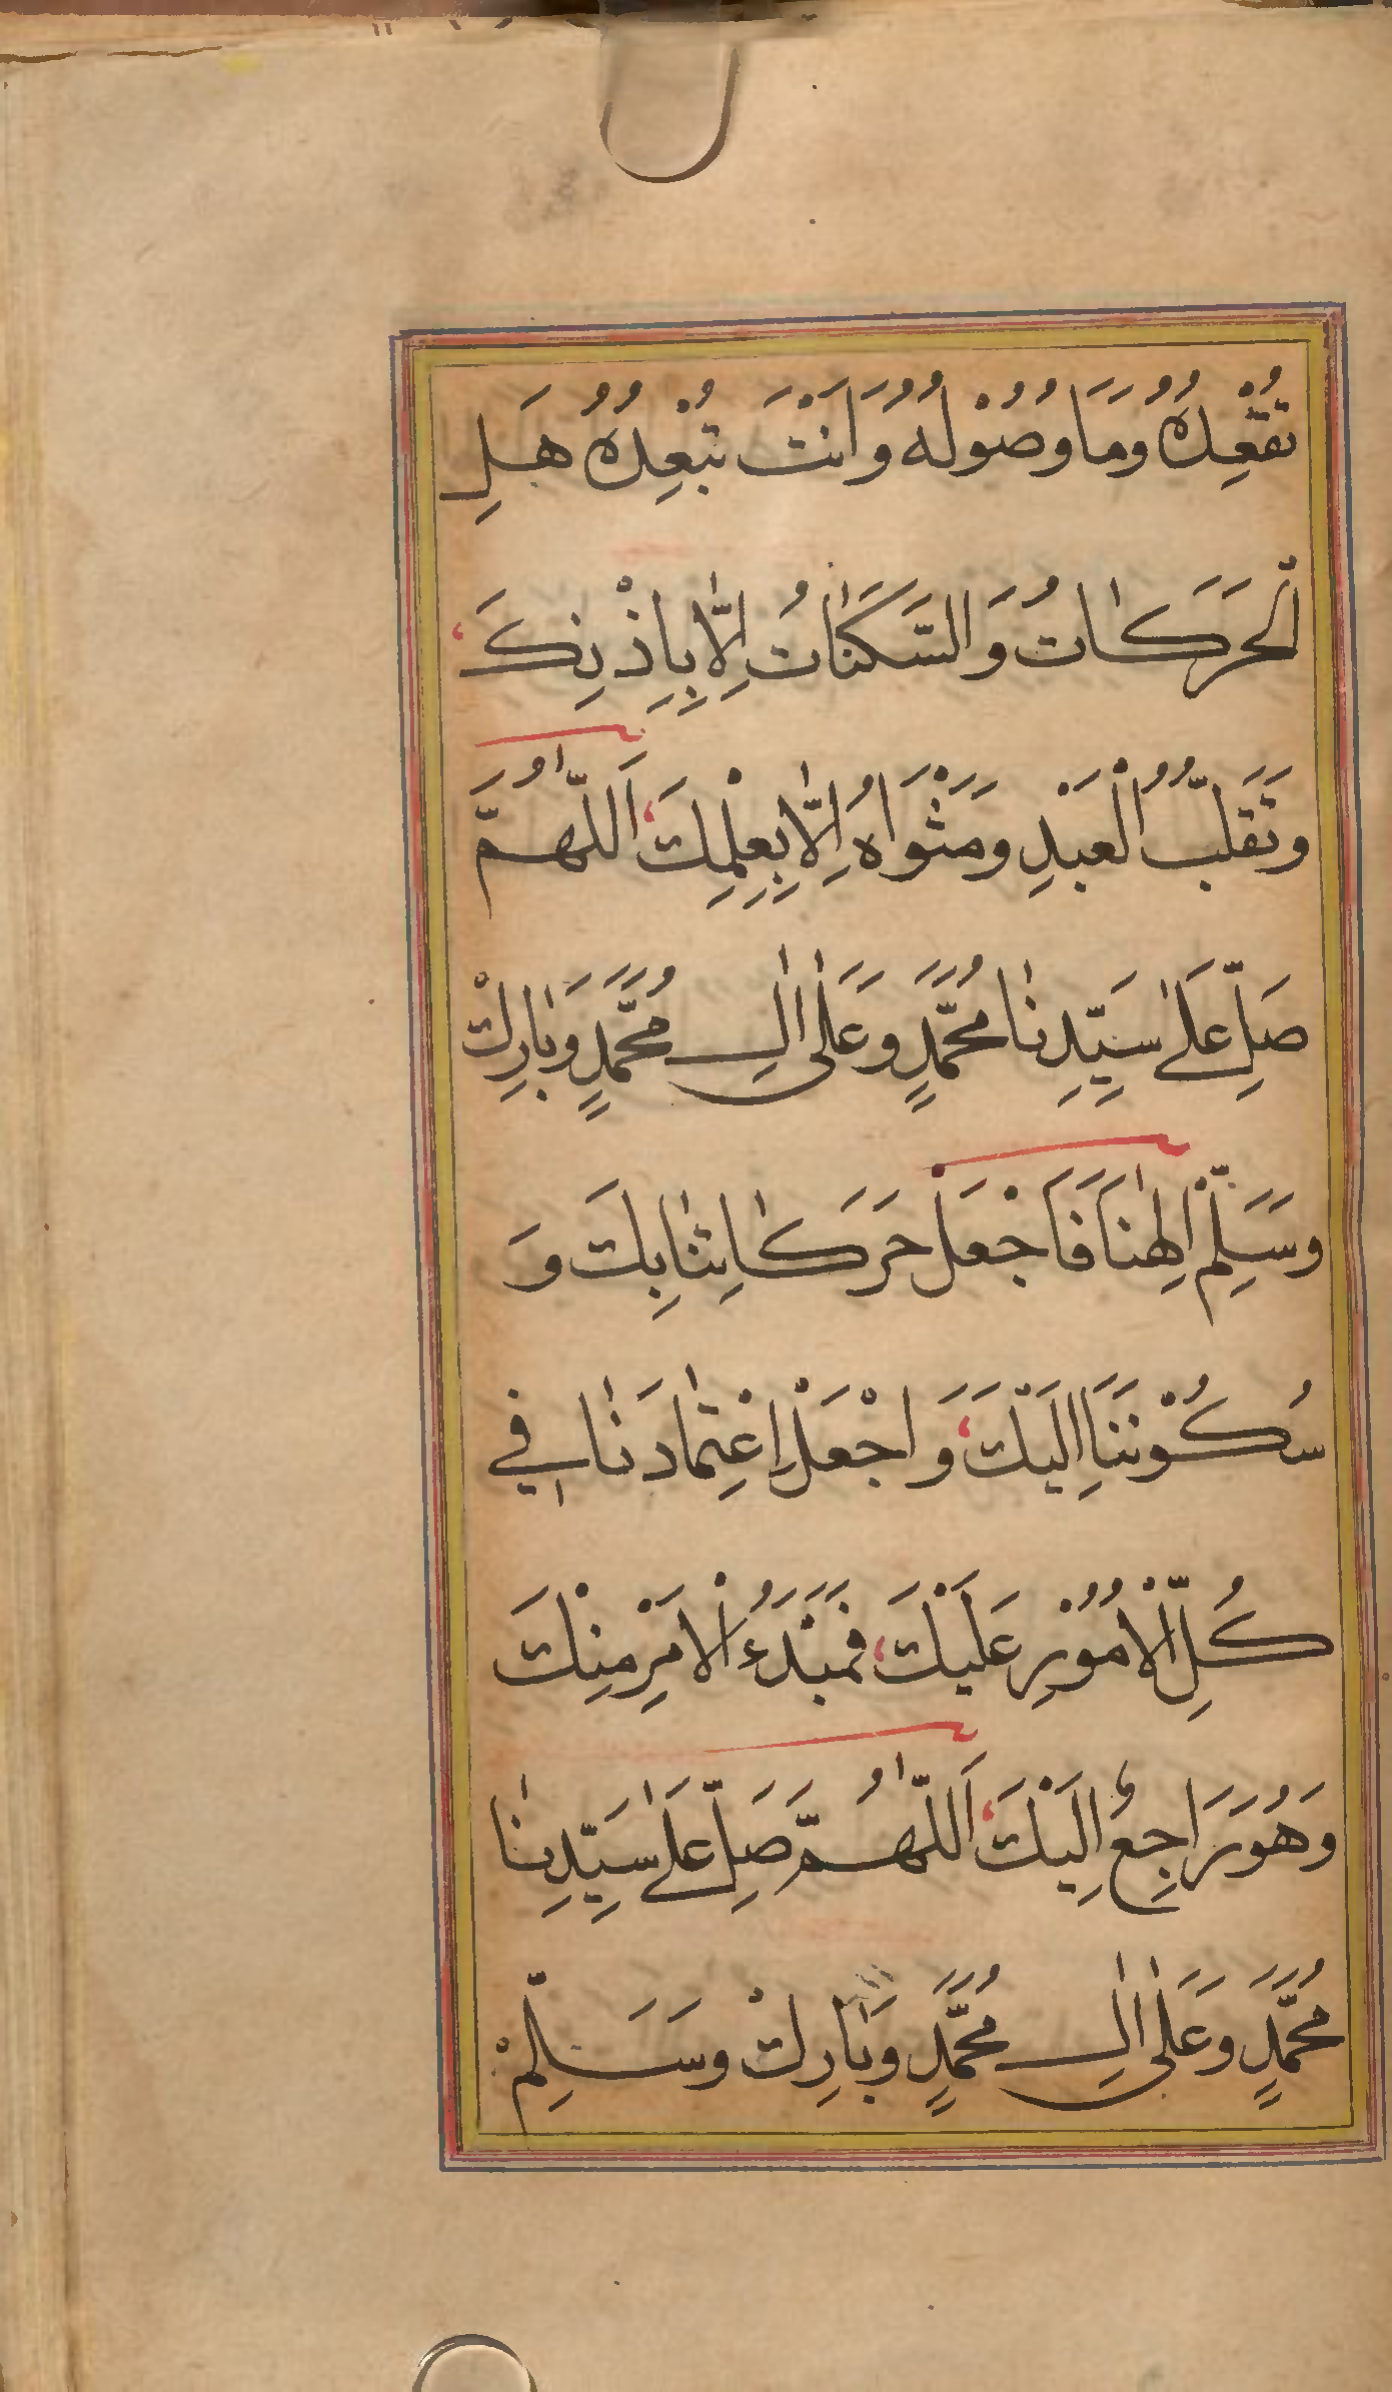 تُقْعِدُهُ وَمَا وُصُوْلُهُ وَاَنْتَ تُبْعِدُهُ هَلِ
الْحَرَكَاتُ وَالسَّكَنَاتُ اِلَّا بِاِذْنِكَ
وَتَقَلُّبُ الْعَبْدِ وَمَثْوَاهُ اِلَّا بِعِلْمِكَ اَللّٰهُمَّ
صَلِّ عَلٰى سَيِّدِنَا مُحَمَّدٍ وَعَلٰى اٰلِ مُحَمَّدٍ وَبَارِكْ
وَسَلِّمْ اِلٰهَنَا فَاجْعَلْ حَرَكَاتِنَا بِكَ وَ
سُكُوْنَنَا اِلَيْكَ وَاجْعَلْ اِعْتِمَادَنَا فِي
كُلِّ الْاُمُوْرِ عَلَيْكَ فَمَبْدَءُ الْاَمْرِ مِنْكَ
وَهُوَ رَاجِعٌ اِلَيْكَ اَللّٰهُمَّ صَلِّ عَلٰى سَيِّدِنَا
مُحَمَّدٍ وَعَلٰى اٰلِ مُحَمَّدٍ وَبَارِكْ وَسَلِّمْ